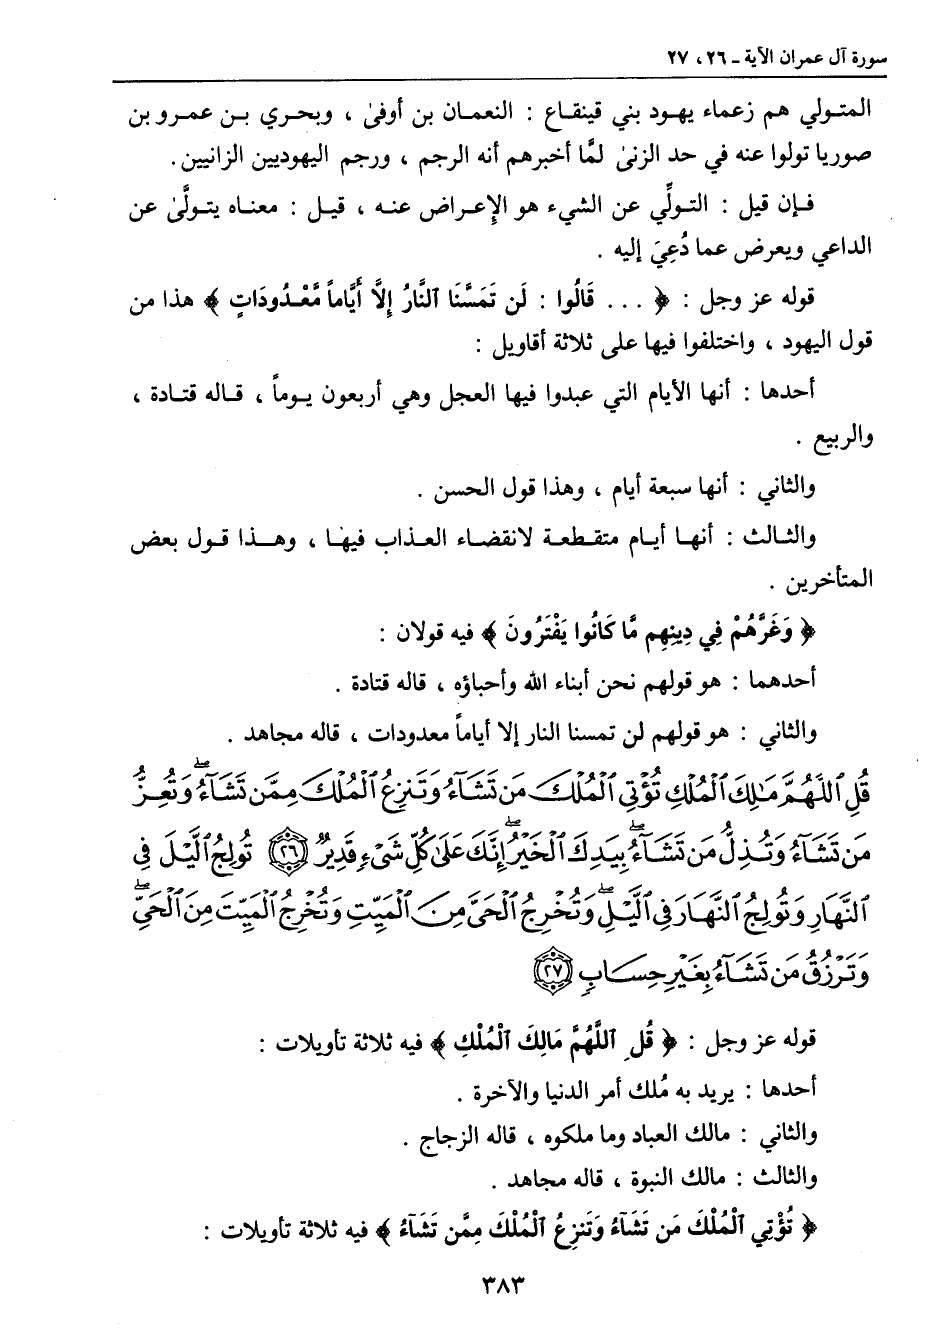 سورة آل عمران الآية ـ ٢٦ ، ٢٧
المتولي هم زعماء يهود بني قينقاع : النعمان بن أوفىٰ ، وبحري بن عمرو بن
صوريا تولوا عنه في حد الزنىٰ لمَّا أخبرهم أنه الرجم ، ورجم اليهوديين الزانيين .
فإن قيل : التولِّي عن الشيء هو الإعراض عنه ، قيل : معناه يتولَّىٰ عن
الداعي ويعرض عما دُعِيَ إليه .
قوله عز وجل : ﴿ . . . قَالُوا : لَن تَمَسَّنَا ٱلنَّارُ إِلَّا أَيَّاماً مَّعْدُودَاتٍ ﴾ هذا من
قول اليهود ، واختلفوا فيها على ثلاثة أقاويل :
أحدها : أنها الأيام التي عبدوا فيها العجل وهي أربعون يوماً ، قاله قتادة ،
والربيع .
والثاني : أنها سبعة أيام ، وهذا قول الحسن .
والثالث : أنها أيام متقطعة لانقضاء العذاب فيها ، وهذا قول بعض
المتأخرين .
﴿ وَغَرَّهُمْ فِي دِينِهِم مَّا كَانُوا يَفْتَرُونَ ﴾ فيه قولان :
أحدهما : هو قولهم نحن أبناء الله وأحباؤه ، قاله قتادة .
والثاني : هو قولهم لن تمسنا النار إلا أياماً معدودات ، قاله مجاهد .
قُلِ ٱللَّهُمَّ مَٰلِكَ ٱلْمُلْكِ تُؤْتِى ٱلْمُلْكَ مَن تَشَآءُ وَتَنزِعُ ٱلْمُلْكَ مِمَّن تَشَآءُۖ وَتُعِزُّ
مَن تَشَآءُ وَتُذِلُّ مَن تَشَآءُۖ بِيَدِكَ ٱلْخَيْرُۖ إِنَّكَ عَلَىٰ كُلِّ شَىْءٍ قَدِيرٌ ﴿٢٦﴾ تُولِجُ ٱلَّيْلَ فِى
ٱلنَّهَارِ وَتُولِجُ ٱلنَّهَارَ فِى ٱلَّيْلِۖ وَتُخْرِجُ ٱلْحَىَّ مِنَ ٱلْمَيِّتِ وَتُخْرِجُ ٱلْمَيِّتَ مِنَ ٱلْحَىِّۖ
وَتَرْزُقُ مَن تَشَآءُ بِغَيْرِ حِسَابٍ ﴿٢٧﴾
قوله عز وجل : ﴿ قُلِ ٱللَّهُمَّ مَالِكَ ٱلْمُلْكِ ﴾ فيه ثلاثة تأويلات :
أحدها : يريد به مُلك أمر الدنيا والآخرة .
والثاني : مالك العباد وما ملكوه ، قاله الزجاج .
والثالث : مالك النبوة ، قاله مجاهد .
﴿ تُؤْتِي ٱلْمُلْكَ مَن تَشَآءُ وَتَنزِعُ ٱلْمُلْكَ مِمَّن تَشَآءُ ﴾ فيه ثلاثة تأويلات :
٣٨٣